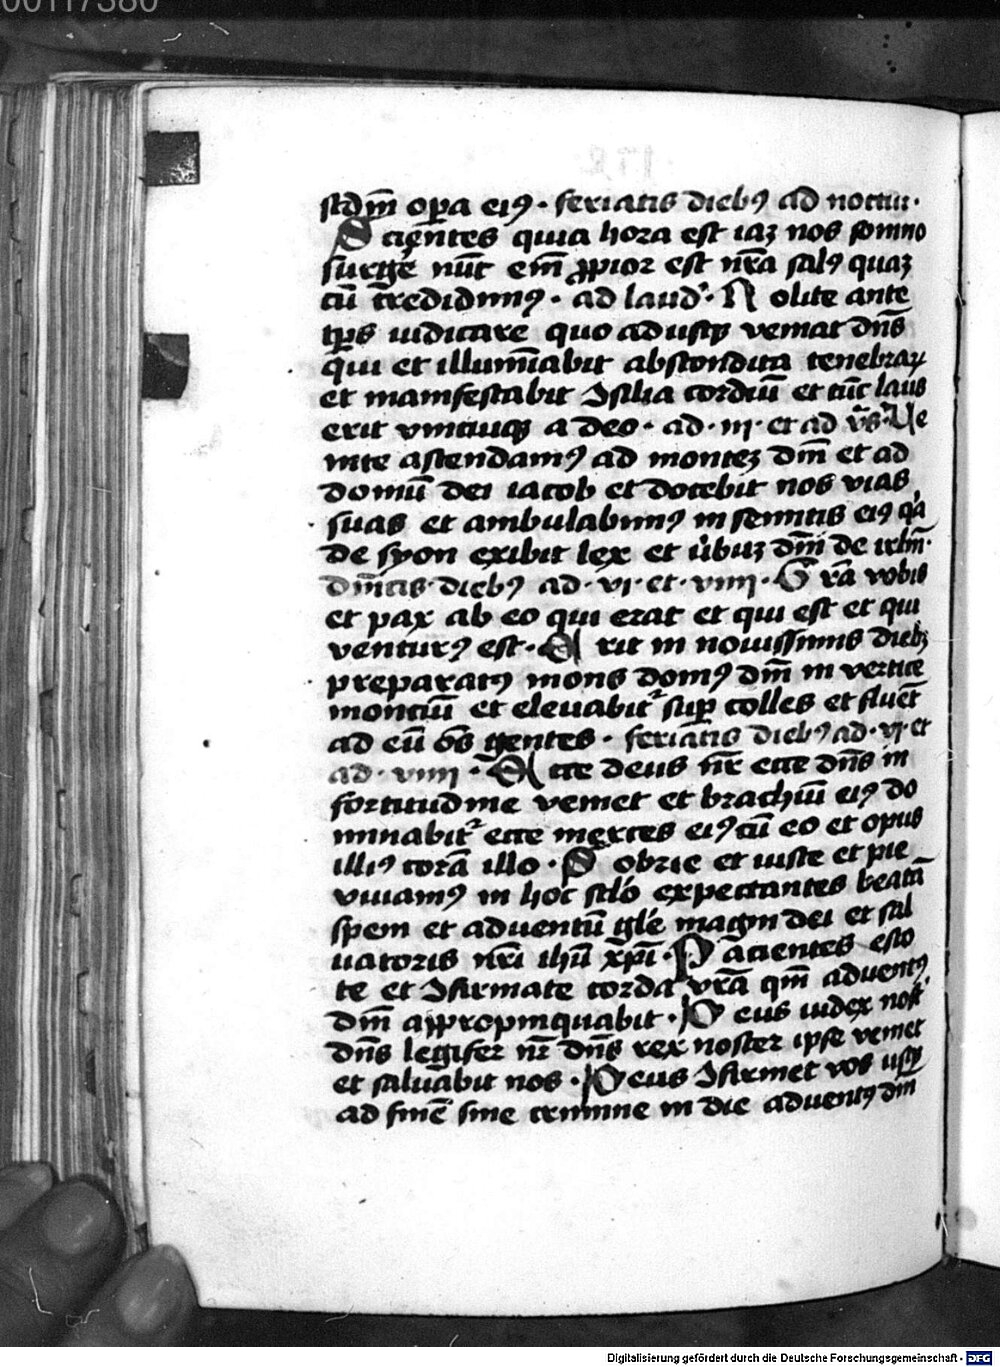 00117380
scdm̄ oꝑa eiꝰ · feriatis diebꝰ ad noctur̄ ·
Scientes quia hora est iaꝫ nos somno
surgẽ nūc em̄ ꝓpior est nr̄a salꝰ quaꝫ
cū credidimꝰ · ad laud̕ · Nolite ante
tp̄s iudicare quo adusqꝫ veniat dn̄s
qui et illumīabit abscondita tenebraꝝ
et manifestabit ꝯsilia cordiū et tūc laus
erit vnicuiqꝫ a deo · ad · iii · et ad v̄s · Ve
nite ascendamꝰ ad monteꝫ dn̄i et ad
domū dei iacob et docebit nos vias
suas et ambulabimꝰ in semitis eiꝰ q̄a
de syon exibit lex et v̕buꝫ dn̄i de irlm̄ ·
dn̄icis diebꝰ ad · vi · et · viiii · Gr̄a vobis
et pax ab eo qui erat et qui est et qui
venturꝰ est · Erit in nouissimis diebꝫ
preparatꝰ mons domꝰ dn̄i in vertice
montiū et eleuabit᷑ suꝑ colles et fluēt
ad eū om̄s gentes · feriatis diebꝰ ad · vi · et
ad · viiii · Ecce deus nr̄ ecce dn̄s in
fortitudine veniet et brachiū eiꝰ do
minabit᷑ ecce merces eiꝰ cū eo et opus
illiꝰ corā illo · Sobrie et iuste et pie
viuamꝰ in hoc sc̄lo expectantes beatā
spem et aduentū gl̄e magni dei et sal
uatoris nr̄i ih̄u xp̄i · Pacientes esto
te et ꝯfirmate corda vr̄a qm̄ aduentꝰ
dn̄i appropinquabit · Deus iudex nost̕
dn̄s legifer nr̄ dn̄s rex noster ipse veniet
et saluabit nos · Deus ꝯfirmet vos usqꝫ
ad finē sine crimine in die aduentꝰ dn̄i
Digitalisierung gefördert durch die Deutsche Forschungsgemeinschaft - DFG